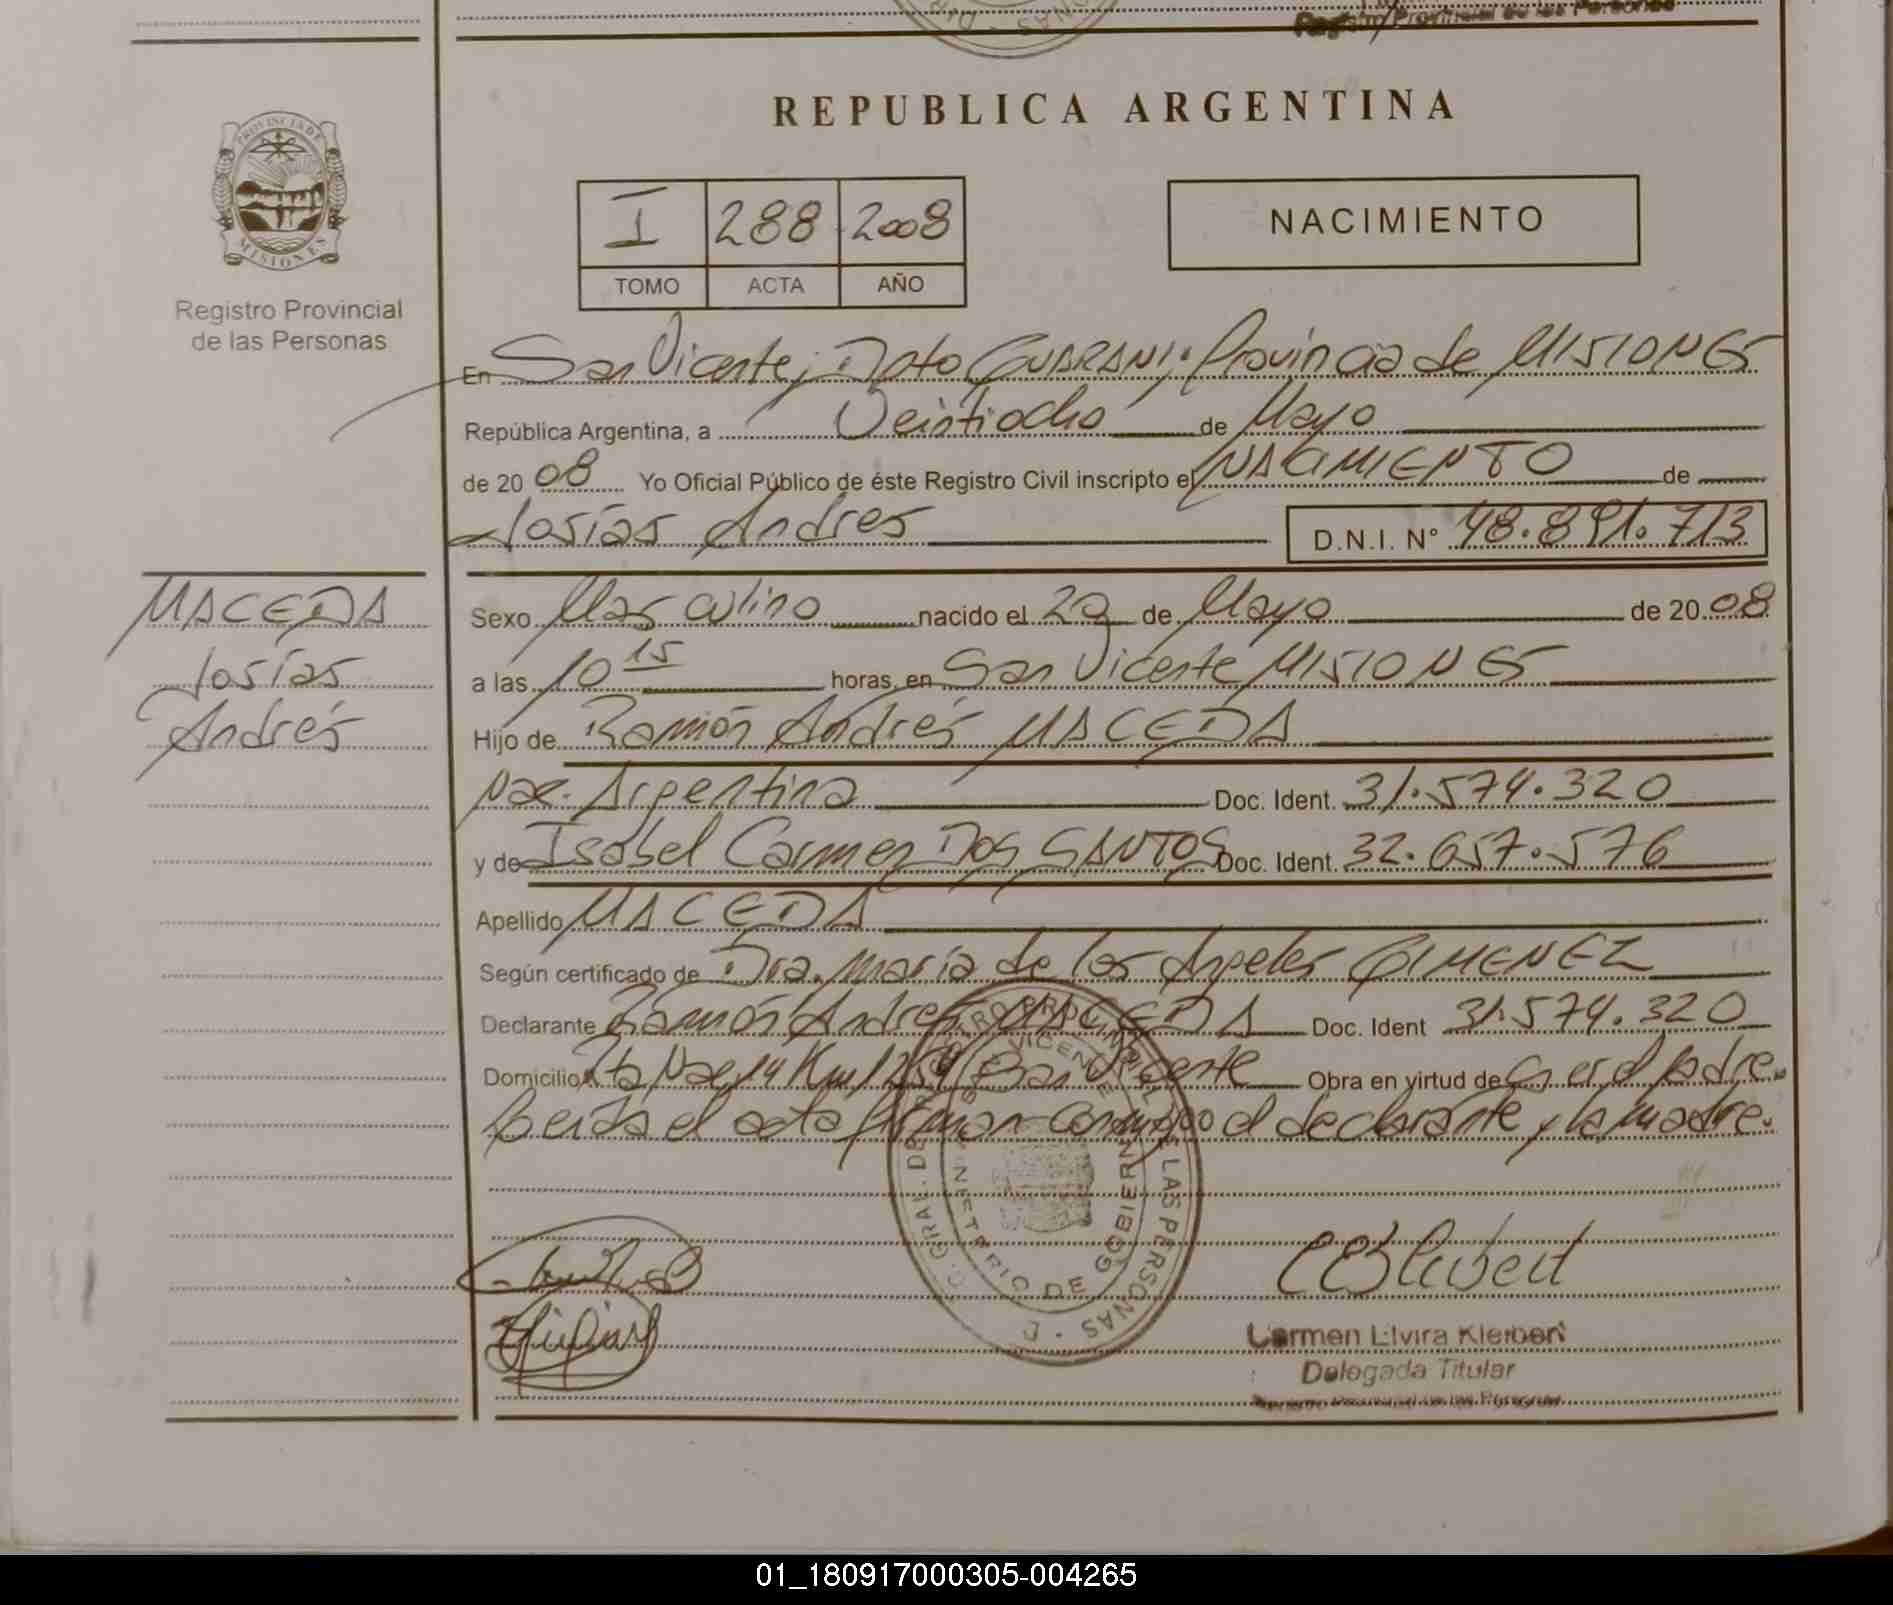 Registro Provincial de las Personas
REPUBLICA ARGENTINA
PROVINCIA DE
MISIONES
Registro Provincial
de las Personas
I 288 2008
TOMO ACTA AÑO
NACIMIENTO
En San Vicente, Dpto GUARANI, Provincia de MISIONES
República Argentina, a Veintiocho de Mayo
de 2008 Yo Oficial Público de éste Registro Civil inscripto el NACIMIENTO de
Josías Andres D.N.I. N° 48.891.713
MACEDA
Josías
Andrés
Sexo Masculino nacido el 20 de Mayo de 2008
a las 10 15 horas, en San Vicente MISIONES
Hijo de Ramón Andrés MACEDA
Nac. Argentina Doc. Ident. 31.574.320
y de Isabel Carmen DOS SANTOS Doc. Ident. 32.657.576
Apellido MACEDA
Según certificado de Dra. María de los Angeles GIMENEZ
Declarante Ramón Andres MACEDA Doc. Ident 31.574.320
Domicilio Rta Nac 14 Km 1259 San Vicente Obra en virtud de ser el padre.
Leída el acta firman conmigo el declarante y la madre.
MINISTERIO DE GOBIERNO
DE LAS PERSONAS
Carmen Elvira Kleibert
Delegada Titular
Registro Provincial de las Personas
01_180917000305-004265